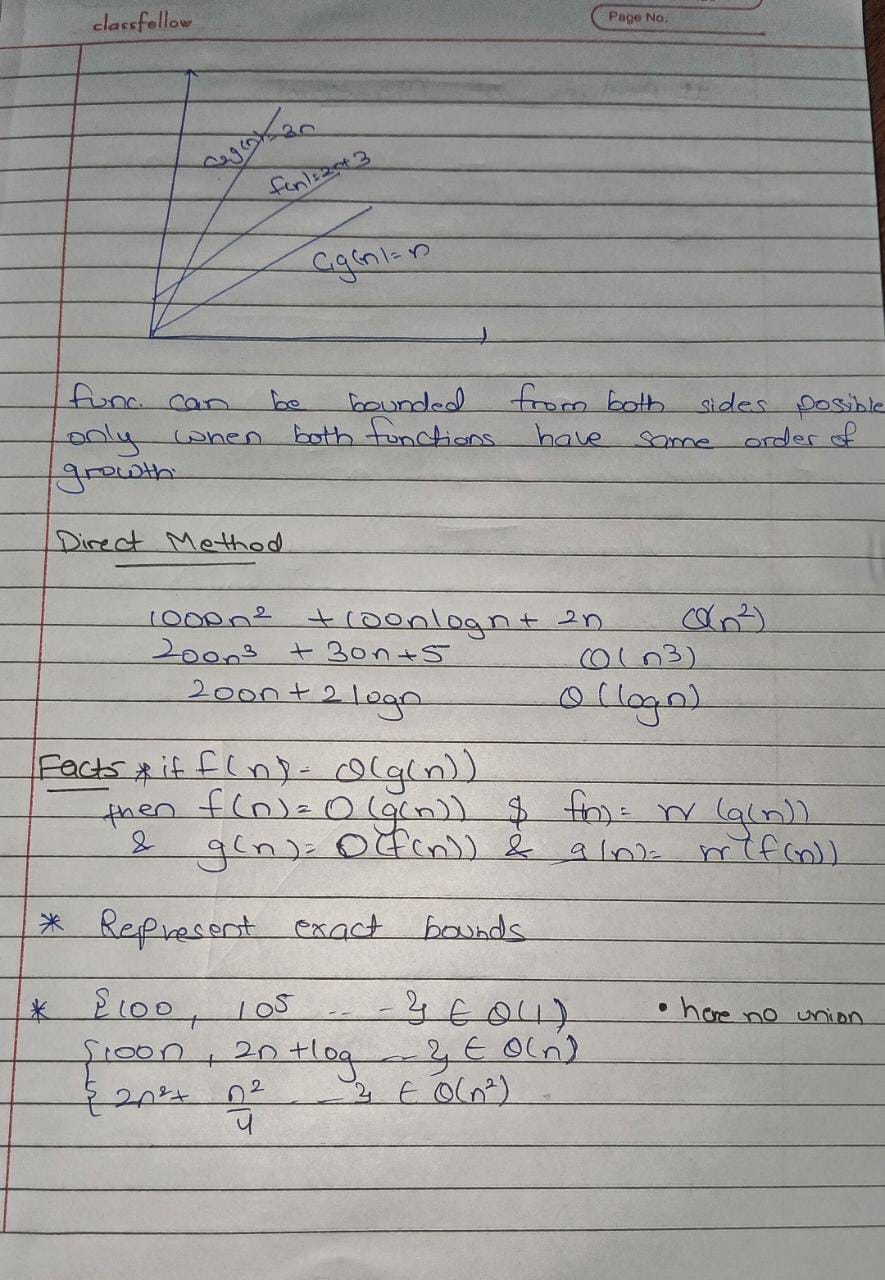 classfellow
Page No.
C2g(n)=3n
f(n)=2n+3
C1g(n)=n
func. can be bounded from both sides posible
only when both functions have same order of
growth.
Direct Method
1000n² + 100nlogn + 2n Θ(n²)
200n³ + 30n+5 Θ(n3)
200n + 2logn Θ(logn)
Facts * if f(n) = Θ(g(n))
then f(n) = O(g(n)) & f(n) = Ω(g(n))
& g(n) = O(f(n)) & g(n) = Ω(f(n))
* Represent exact bounds
* {100, 105 .. - } ∈ Θ(1) • here no union
{100n, 2n+log - } ∈ Θ(n)
{2n²+ n²/4 - - } ∈ Θ(n²)